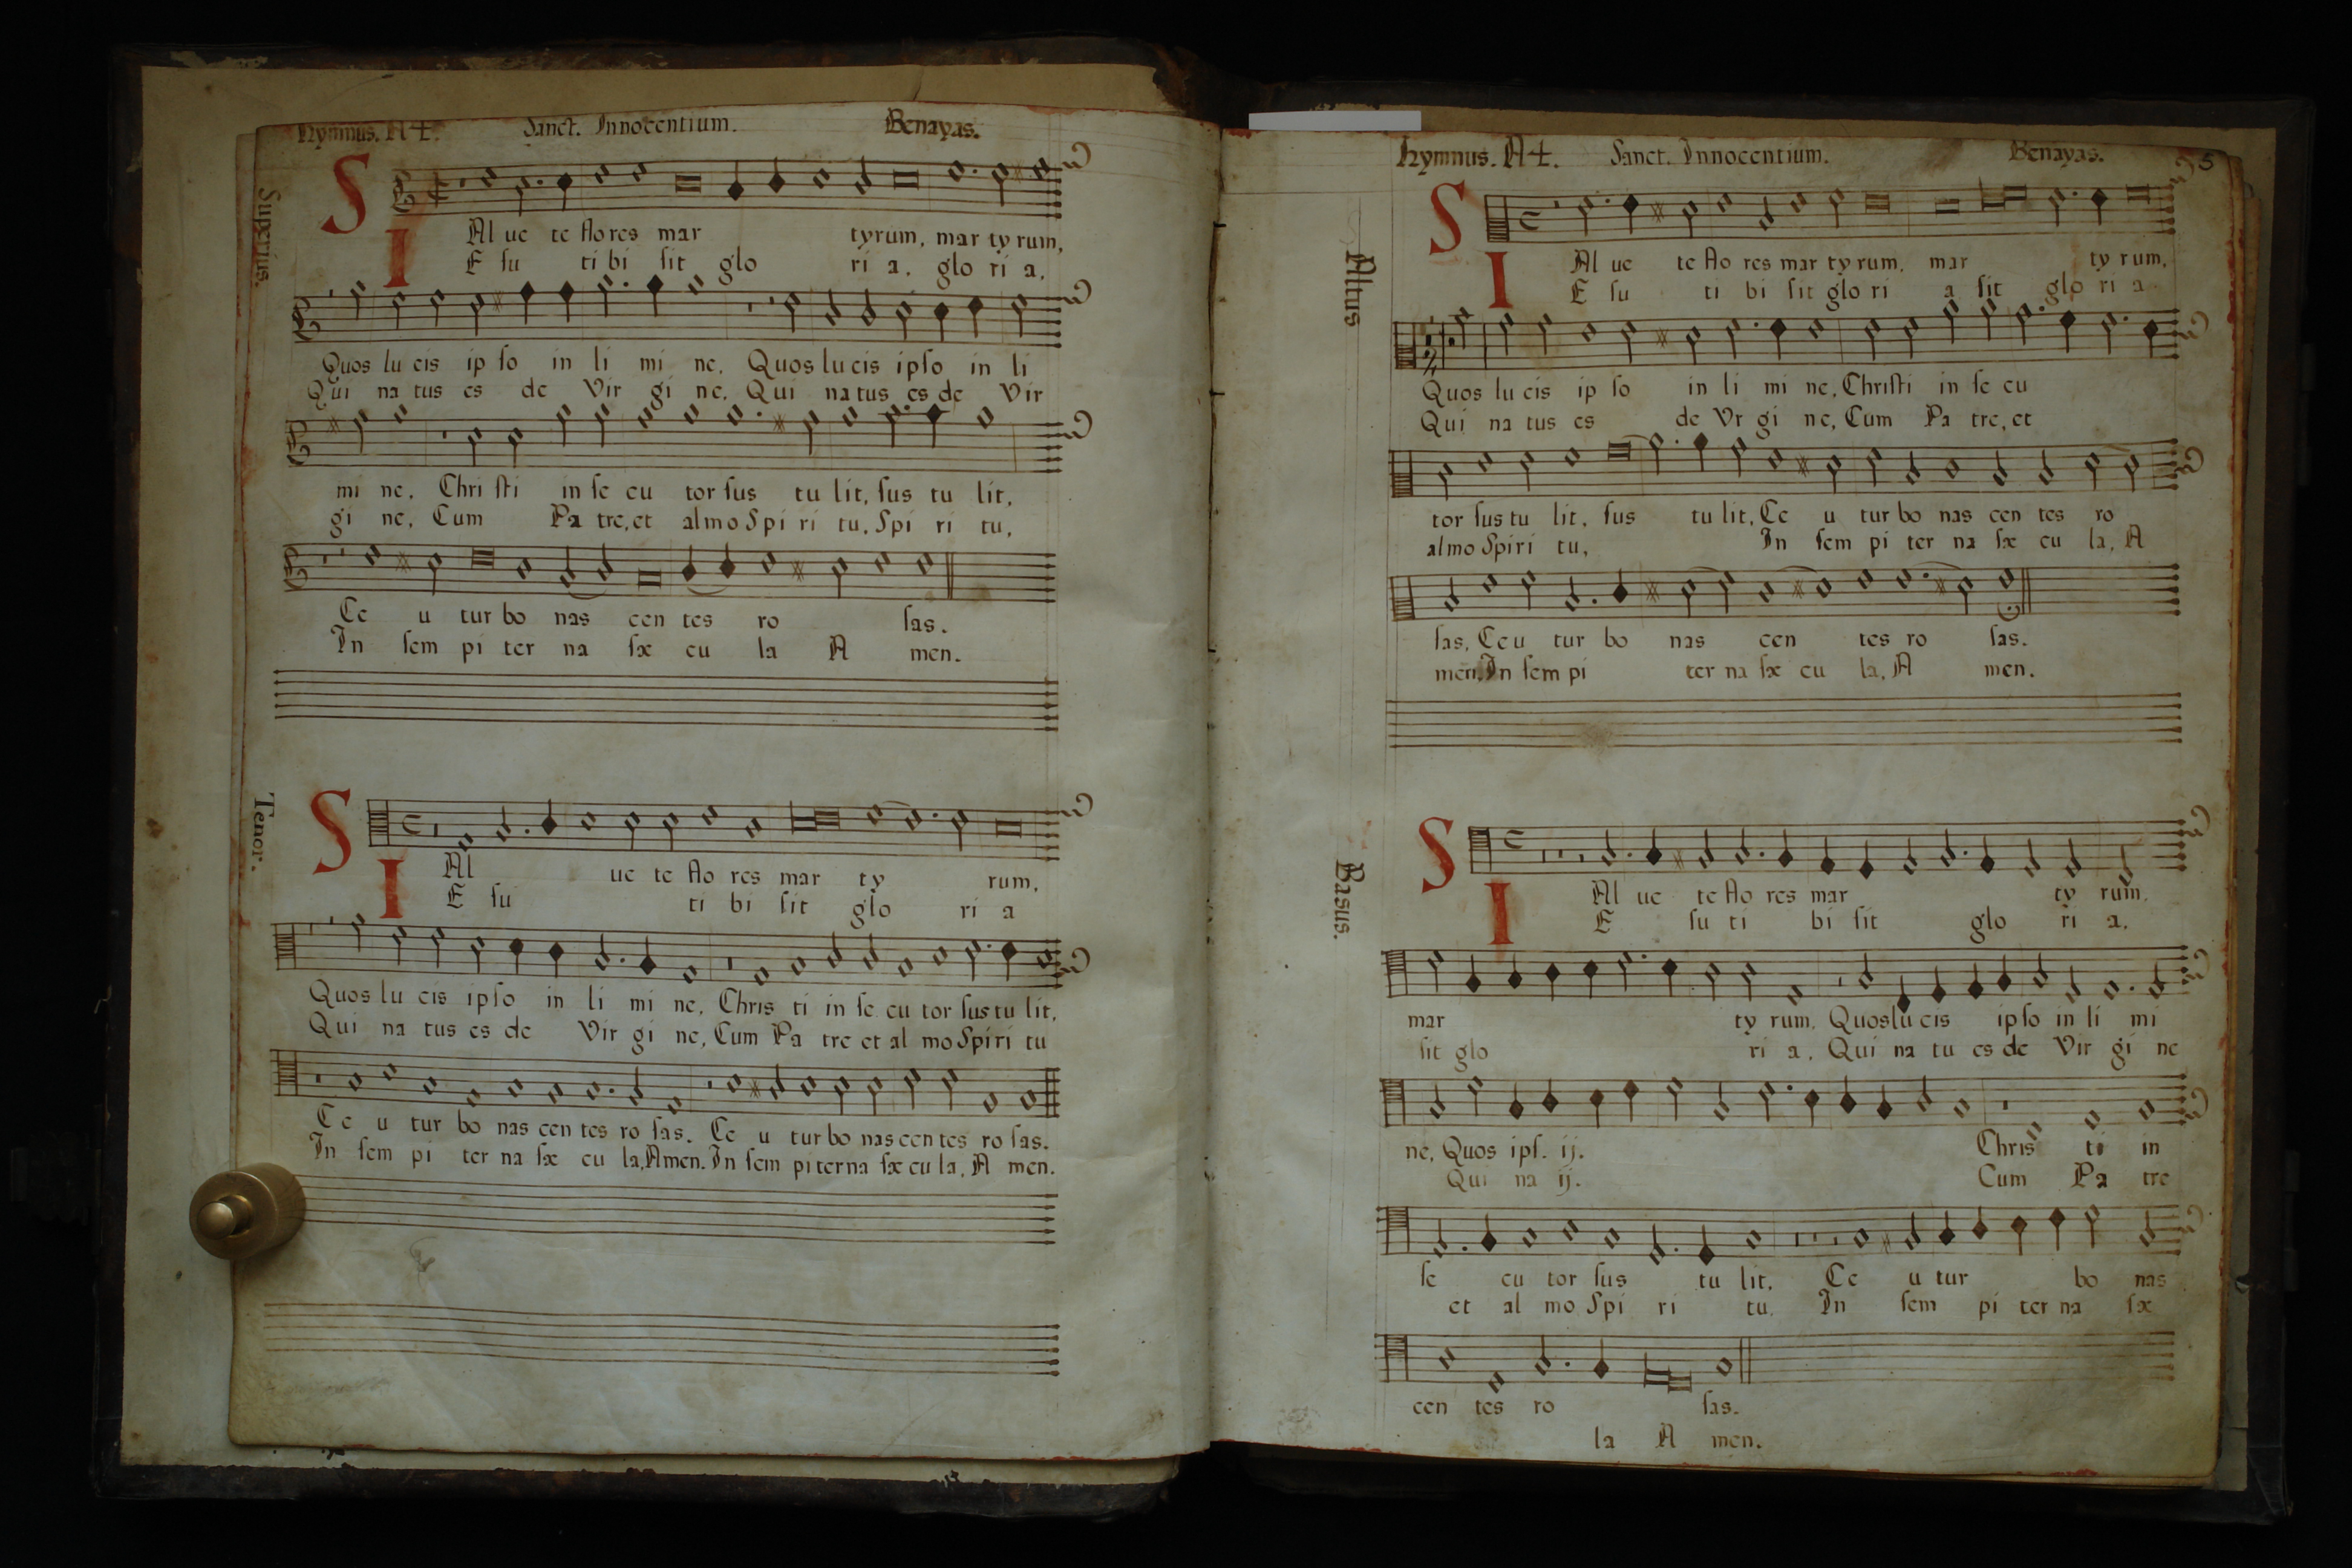 Hymnus. A4. Sanct. Innocentium. Benayas.
Superius.
S Al ue te flo res mar tyrum, mar ty rum,
I E su ti bi sit glo ri a, glo ri a,
Quos lu cis ip so in li mi ne, Quos lu cis ipso in li
Qui na tus es de Vir gi ne, Qui na tus es de Vir
mi ne, Chri sti in se cu tor sus tu lit, sus tu lit,
gi ne, Cum Pa tre, et almo Spi ri tu, Spi ri tu,
Ce u tur bo nas cen tes ro sas.
In sem pi ter na sæ cu la A men.
Tenor.
S Al ue te flo res mar ty rum,
I E su ti bi sit glo ri a
Quos lu cis ipso in li mi ne, Chris ti in se cu tor sus tu lit,
Qui na tus es de Vir gi ne, Cum Pa tre et al mo Spiri tu
Ce u tur bo nas cen tes ro sas. Ce u tur bo nas cen tes ro sas.
In sem pi ter na sæ cu la, Amen. In sem pi ter na sæ cu la, A men.
Hymnus. A4. Sanct. Innocentium. Benayas. 5
Altus
S Al ue te flo res mar ty rum, mar ty rum,
I E su ti bi sit glo ri a sit glo ri a
Quos lu cis ip so in li mi ne, Christi in se cu
Qui na tus es de Vr gi ne, Cum Pa tre, et
tor sus tu lit, sus tu lit, Ce u tur bo nas cen tes ro
almo Spiri tu, In sem pi ter na sæ cu la, A
sas, Ceu tur bo nas cen tes ro sas.
men, In sem pi ter na sæ cu la, A men.
Basus.
S Al ue te flo res mar ty rum,
I E su ti bi sit glo ri a,
mar ty rum, Quos lu cis ip so in li mi
sit glo ri a, Qui na tu es de Vir gi ne
ne, Quos ips. ij. Chris ti in
Qui na ij. Cum Pa tre
se cu tor sus tu lit, Ce u tur bo nas
et al mo Spi ri tu, In sem pi ter na sæ
cen tes ro sas.
la A men.